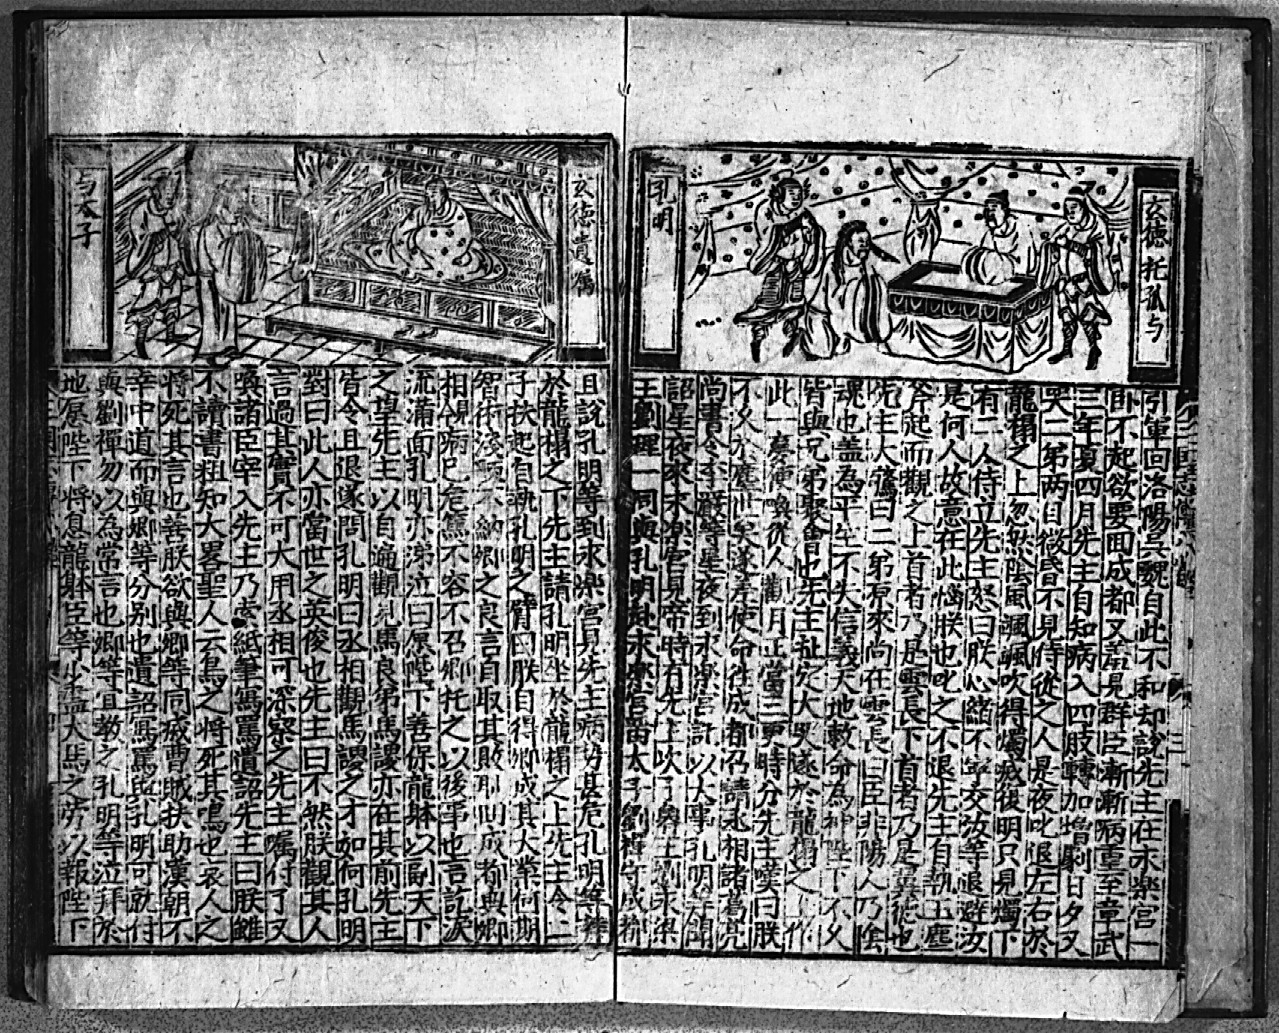 玄德托孤与
孔明
引軍回洛陽吳魏自此不和却說先主在永樂宫一
卧不起欲要回成都又羞見群臣漸漸病重至章武
三年夏四月先主自知病入四肢轉加增劇日夕又
哭二弟两目微昏不見侍從之人是夜叱退左右於
龍榻之上忽然陰風颯颯吹得燭滅復明只見燭下
有二人侍立先主怒曰朕心緒不寧交汝等退避汝
是何人故意在此惱朕也叱之不退先主自執玉麈
斧起而觀之上首者乃是雲長下首者乃是翼徳也
先主大驚曰二弟原來尚在雲長曰臣非陽人乃陰
魂也盖為平生不失信義天地敕命為神陛下不久
皆與兄弟聚會也先主扯定大哭遂於龍榻之
此一夢便喚從人觀月正當三更時分先主嘆曰朕
不久於塵世矣遂差使命往成都召請丞相諸葛亮
尚書令李嚴等星夜到永樂宫託以大事孔明等聞
詔星夜來永樂宫見帝時有先主次子魯王劉永梁
王劉理一同與孔明赴永樂宫留太子劉禪守成都
玄德遺囑
与太子
且說孔明等到永樂宫見先主病势甚危孔明等拜
於龍榻之下先主請孔明坐於龍榻之上先主令二
子扶起自執孔明之臂曰朕自得卿成其大業何期
智術淺陋不納卿之良言自取其敗耶聞成都與卿
相親病已危篤不容不召卿托之以後事也言訖淚
流滿面孔明亦涕泣曰愿陛下善保龍躰以副天下
之望先主以目通觀見馬良弟馬謖亦在其前先主
皆令且退遂問孔明曰丞相觀馬謖之才如何孔明
對曰此人亦當世之英俊也先主曰不然朕觀其人
言過其實不可大用丞相可深察之先主囑付了又
喚諸臣宰入先主乃索紙筆寫罵遺詔先主曰朕雖
不讀書粗知大畧聖人云鳥之將死其鳴也哀人之
將死其言也善朕欲與卿等同滅曹賊扶助漢朝不
幸中道而與卿等分别也遺詔寫罵與孔明可就付
與劉禪勿以為常言也卿等宜教之孔明等泣拜於
地愿陛下將息龍躰臣等少盡犬馬之勞以報陛下